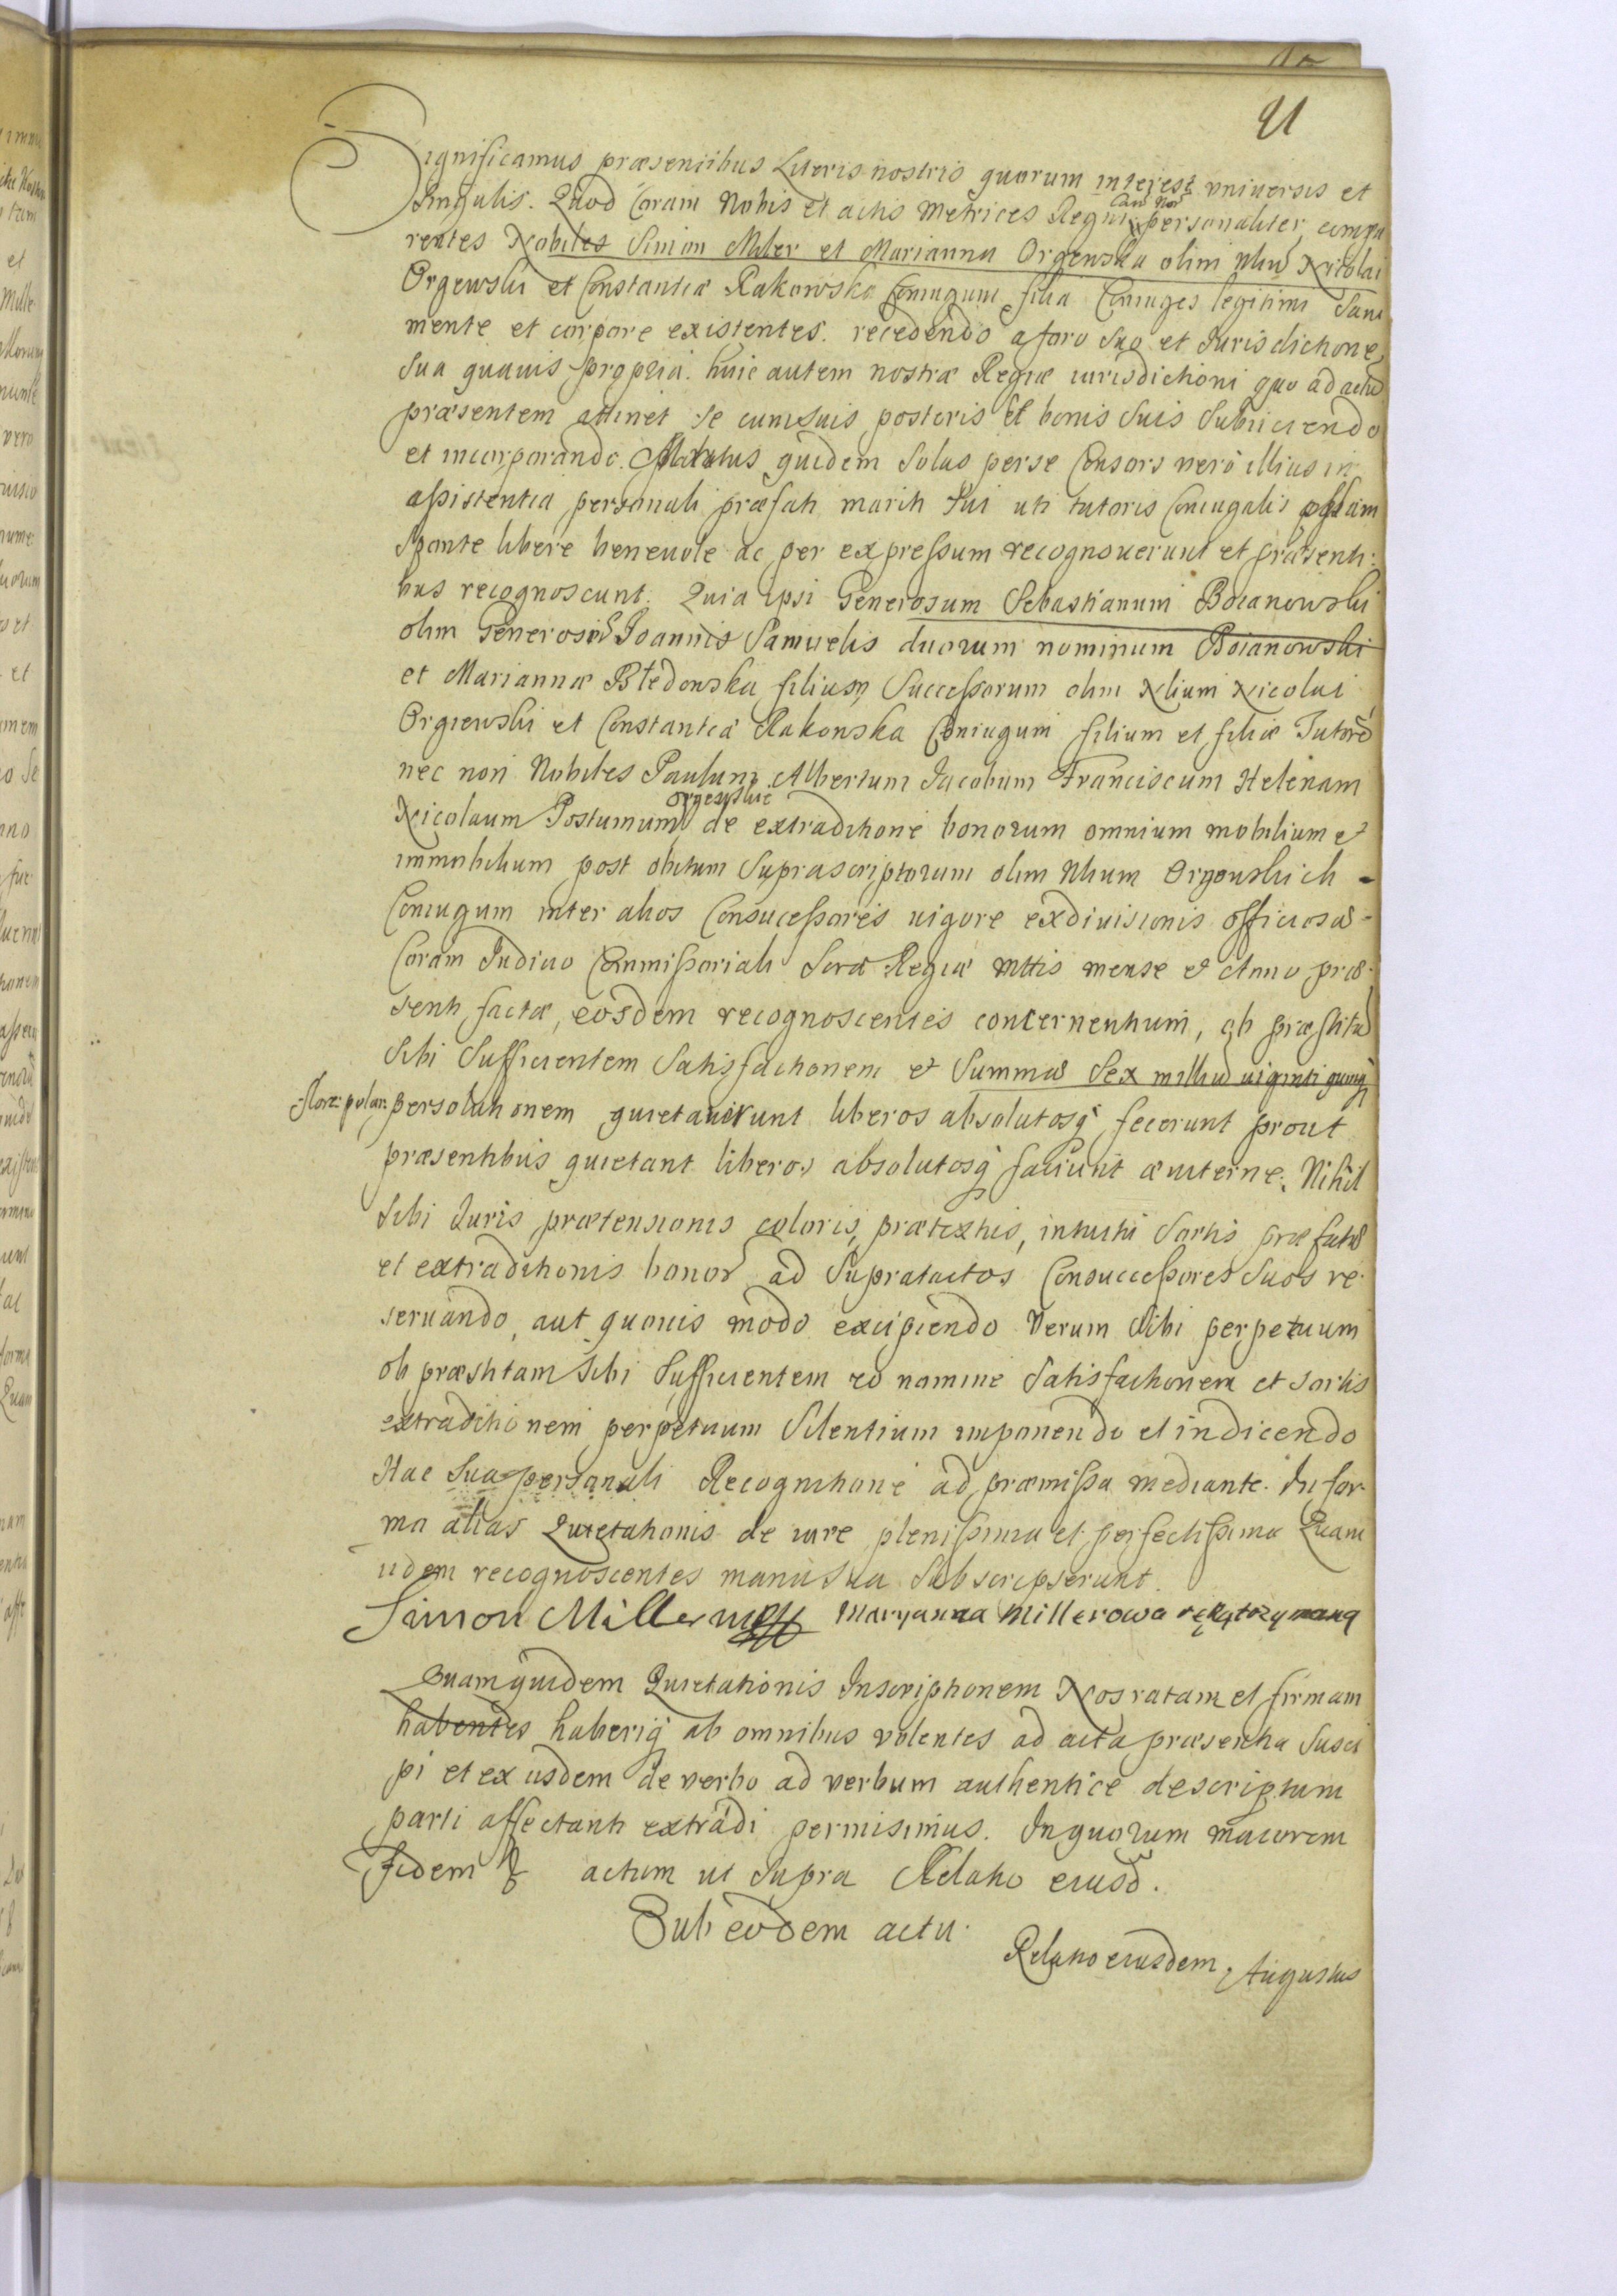 21
Significamus præsentibus Literis nostris quorum interest vniuersis et
Singulis. Quod Coram Nobis et actis Metrices Regni personaliter compa
rentes Nobiles Simon Miler et Marianna Orgewska olim Nliu Nicolai
Orgewski et Constantiæ Rakowska Coniugum filia Coniuges legitimi Sani
mente et corpore existentes. recedendo a foro suo et Jurisdictione
sua quauis propria. huic autem nostræ Regiæ iurisdictioni quo ad actu
præsentem attinet se cum suis posteris et bonis suis Subiiciendo
et incorporando. Maritus quidem Solus per se Consors verò illius in
assistentia personali præfati mariti sui uti tutoris Coniugalis
Sponte libere beneuole ac per expressum recognouerunt et præsenti:
bus recognoscunt. Quia ipsi Generosum Sebastianum Boianowski
olim Generosi Joannis Samuelis duorum nominum Boianowski
et Mariannæ Błędowska filium Successorum olim Nlium Nicolai
Orgiewski et Constantiæ Rakowska Coniugum filium et filiæ Tutorē
nec non Nobiles Paulum Albertum Jacobum Franciscum Helenam
Orgewskie
Nicolaum Postumum de extraditione bonorum omnium mobilium et
immobilium post obitum Suprascriptorum olim Nlium Orgewskich
Coniugum inter alios Consucessores uigore exdiuisionis officiosæ
Coram Judicio Commissoriali Sacræ Regiæ Mttis mense et Anno præ
senti factæ, eosdem recognoscentes concernentium, ob præstitā
Sibi Sufficientem Satisfactionem et Summæ Sex milliu uiginti quinq
flore: polon: persolutionem quietauerunt liberos absolutosq fecerunt prout
præsentibus quietant liberos absolutosq faciunt æuiterne. Nihil
Sibi Juris prætensionis coloris, prætextus, intuitu Sortis præfatæ
et extraditionis bonor ad Supratactos Consuccessores suos re
seruando, aut quouis modo excipiendo Verum Sibi perpetuum
ob præstitam Sibi Sufficientem eo nomine Satisfactionem et sortis
extraditionem perpetuum Silentium imponendo et indicendo
Hac sua personali Recognitione ad præmissa mediante. In for
ma alias Quietationis de iure plenissima et perfectissima Quam
iidem recognoscentes manu sua Subscripserunt.
Simon Miller mpp Maryanna Millerowa
Quamquidem Quietationis Inscriptionem Nos ratam et firmam
habentes haberiq ab omnibus volentes ad acta præsentia susci
pi et ex iisdem de verbo ad verbum authentice descriptum
parti affectanti extradi permisimus. In quorum maiorem
fidem & actum ut supra Relatio eiusd.
Sub eodem actu.
Relatio eiusdem. Augustus